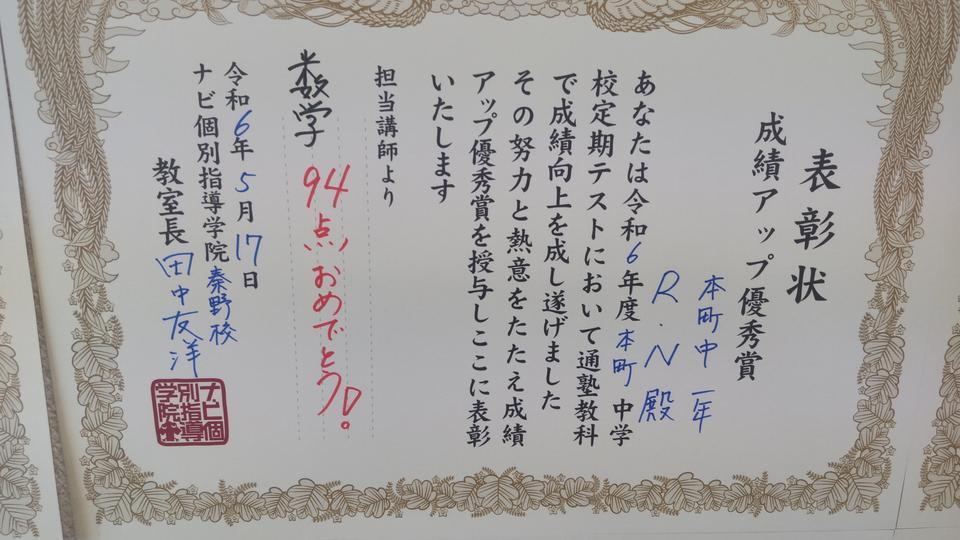 表彰状
成績アップ優秀賞
本町中 一年
R.N 殿
あなたは令和6年度本町中学
校定期テストにおいて通塾教科
で成績向上を成し遂げました
その努力と熱意をたたえ成績
アップ優秀賞を授与しここに表彰
いたします
担当講師より
数学 94点おめでとう!。
令和6年5月17日
ナビ個別指導学院秦野校
教室長 田中友洋
ナビ個
別指導
学院本